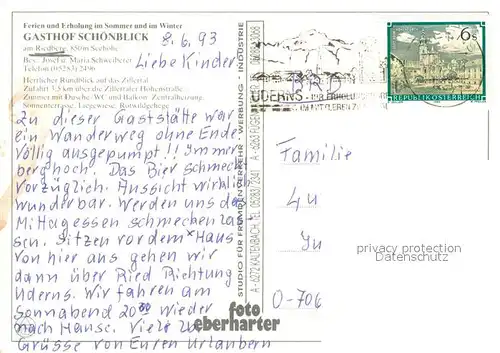 Ferien und Erholung im Sommer und im Winter
GASTHOF SCHÖNBLICK
am Riedberg, 850m Seehöhe
Bes. Josef u. Maria Schweiberer
Telefon (05283) 2496
Herrlicher Rundblick auf das Zillertal
Zufahrt 3,5 km über die Zillertaler Höhenstraße
Zimmer mit Dusche/WC und Balkon, Zentralheizung,
Sonnenterrasse, Liegewiese, Rotwildgehege
8.6.93
Liebe Kinder
Zu dieser Gaststätte war
ein Wanderweg ohne Ende
Völlig ausgepumpt!! Immer
berghoch. Das Bier schmeckt
vorzüglich. Aussicht wirklich
wunderbar. Werden uns das
Mittagessen schmecken las
sen. Sitzen vor dem Haus
Von hier aus gehen wir
dann über Ried Richtung
Uderns. Wir fahren am
Sonnabend 20 wieder
nach Hause. Viele
Grüsse von Euren Urlaubern
STUDIO FÜR FREMDENVERKEHR · WERBUNG · INDUSTRIE
A - 6272 KALTENBACH, TEL. 05283/2341
foto
eberharter
UDERNS
S 6
REPUBLIK ÖSTERREICH
Familie
privacy protection
Datenschutz